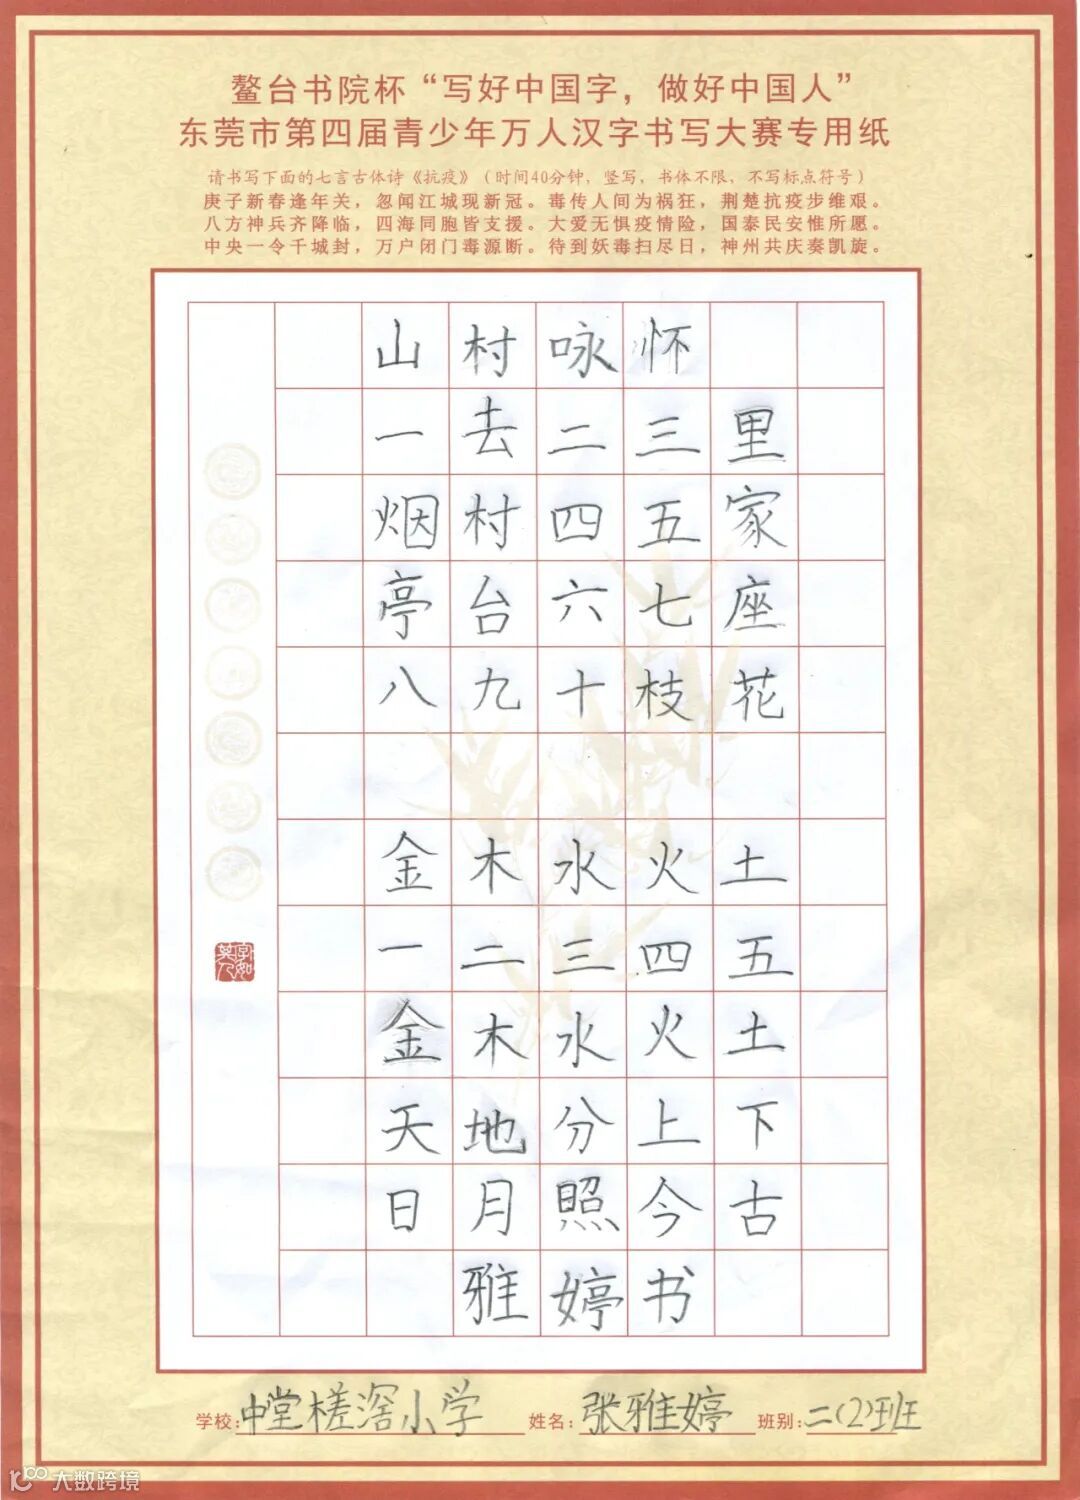 鳌台书院杯“写好中国字，做好中国人”
东莞市第四届青少年万人汉字书写大赛专用纸
请书写下面的七言古体诗《抗疫》（时间40分钟，竖写，书体不限，不写标点符号）
庚子新春逢年关，忽闻江城现新冠。毒传人间为祸狂，荆楚抗疫步维艰。
八方神兵齐降临，四海同胞皆支援。大爱无惧疫情险，国泰民安惟所愿。
中央一令千城封，万户闭门毒源断。待到妖毒扫尽日，神州共庆奏凯旋。
山村咏怀
一去二三里
烟村四五家
亭台六七座
八九十枝花
金木水火土
一二三四五
金木水火土
天地分上下
日月照今古
雅婷书
学校：中堂槎滘小学 姓名：张雅婷 班别：二(2)班
大数跨境